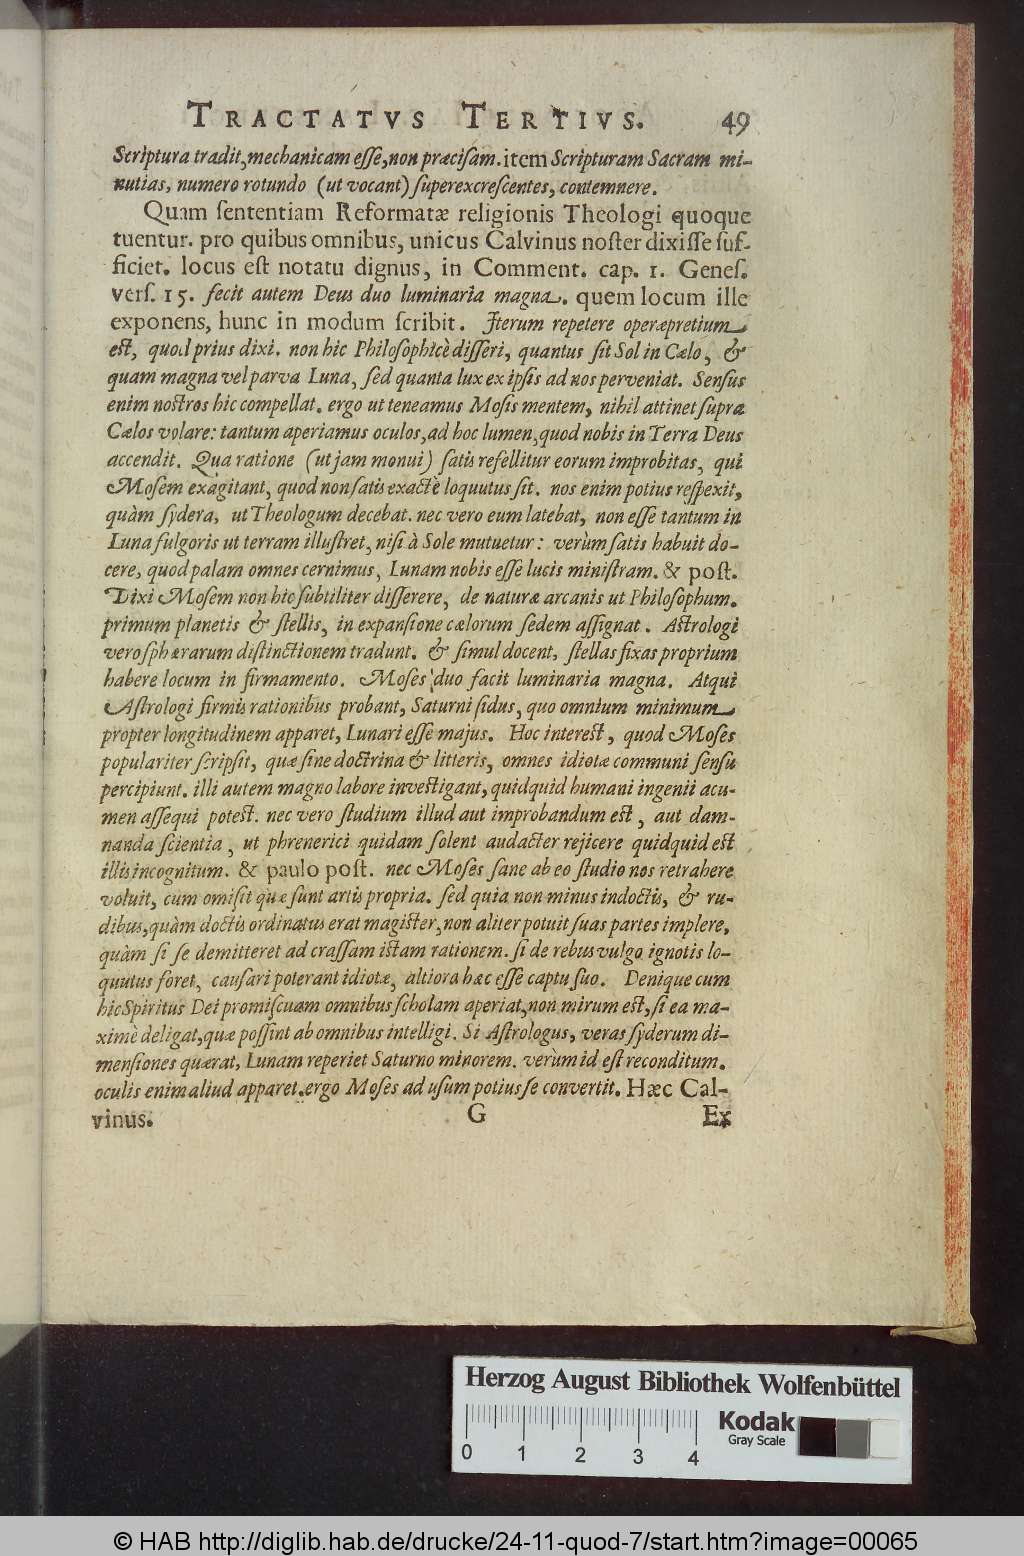 TRACTATVS TERTIVS. 49
Scriptura tradit, mechanicam eſſe, non præciſam. item Scripturam Sacram mi-
nutias, numero rotundo (ut vocant) ſuperexcreſcentes, contemnere.
Quam ſententiam Reformatæ religionis Theologi quoque
tuentur. pro quibus omnibus, unicus Calvinus noſter dixiſſe ſuf-
ficiet. locus eſt notatu dignus, in Comment. cap. 1. Geneſ.
verſ. 15. fecit autem Deus duo luminaria magna. quem locum ille
exponens, hunc in modum ſcribit. Iterum repetere operæpretium
eſt, quod prius dixi. non hic Philoſophicè diſſeri, quantus ſit Sol in Cælo, &
quam magna vel parva Luna, ſed quanta lux ex ipſis ad nos perveniat. Senſus
enim noſtros hic compellat. ergo ut teneamus Moſis mentem, nihil attinet ſupra
Cælos volare: tantum aperiamus oculos, ad hoc lumen, quod nobis in Terra Deus
accendit. Qua ratione (ut jam monui) ſatis refellitur eorum improbitas, qui
Moſem exagitant, quod non ſatis exactè loquutus ſit. nos enim potius reſpexit,
quàm ſydera, ut Theologum decebat. nec vero eum latebat, non eſſe tantum in
Luna fulgoris ut terram illuſtret, niſi à Sole mutuetur: verùm ſatis habuit do-
cere, quod palam omnes cernimus, Lunam nobis eſſe lucis miniſtram. & poſt.
Dixi Moſem non hic ſubtiliter diſſerere, de naturæ arcanis ut Philoſophum.
primum planetis & ſtellis, in expanſione cælorum ſedem aſſignat. Aſtrologi
vero ſphærarum diſtinctionem tradunt. & ſimul docent, ſtellas fixas proprium
habere locum in firmamento. Moſes duo facit luminaria magna. Atqui
Aſtrologi firmis rationibus probant, Saturni ſidus, quo omnium minimum
propter longitudinem apparet, Lunari eſſe majus. Hoc intereſt, quod Moſes
populariter ſcripſit, quæ ſine doctrina & litteris, omnes idiotæ communi ſenſu
percipiunt. illi autem magno labore inveſtigant, quidquid humani ingenii acu-
men aſſequi poteſt. nec vero ſtudium illud aut improbandum eſt, aut dam-
nanda ſcientia, ut phrenerici quidam ſolent audacter rejicere quidquid eſt
illis incognitum. & paulo poſt. nec Moſes ſane ab eo ſtudio nos retrahere
voluit, cum omiſit quæ ſunt artis propria. ſed quia non minus indoctis, & ru-
dibus, quàm doctis ordinatus erat magiſter, non aliter potuit ſuas partes implere,
quàm ſi ſe demitteret ad craſſam iſtam rationem. ſi de rebus vulgo ignotis lo-
quutus foret, cauſari poterant idiotæ, altiora hæc eſſe captu ſuo. Denique cum
hic Spiritus Dei promiſcuam omnibus ſcholam aperiat, non mirum eſt, ſi ea ma-
ximè deligat, quæ poſſint ab omnibus intelligi. Si Aſtrologus, veras ſyderum di-
menſiones quærat, Lunam reperiet Saturno minorem. verùm id eſt reconditum.
oculis enim aliud apparet. ergo Moſes ad uſum potius ſe convertit. Hæc Cal-
vinus. G Ex
Herzog August Bibliothek Wolfenbüttel
Kodak
Gray Scale
0 1 2 3 4
© HAB http://diglib.hab.de/drucke/24-11-quod-7/start.htm?image=00065